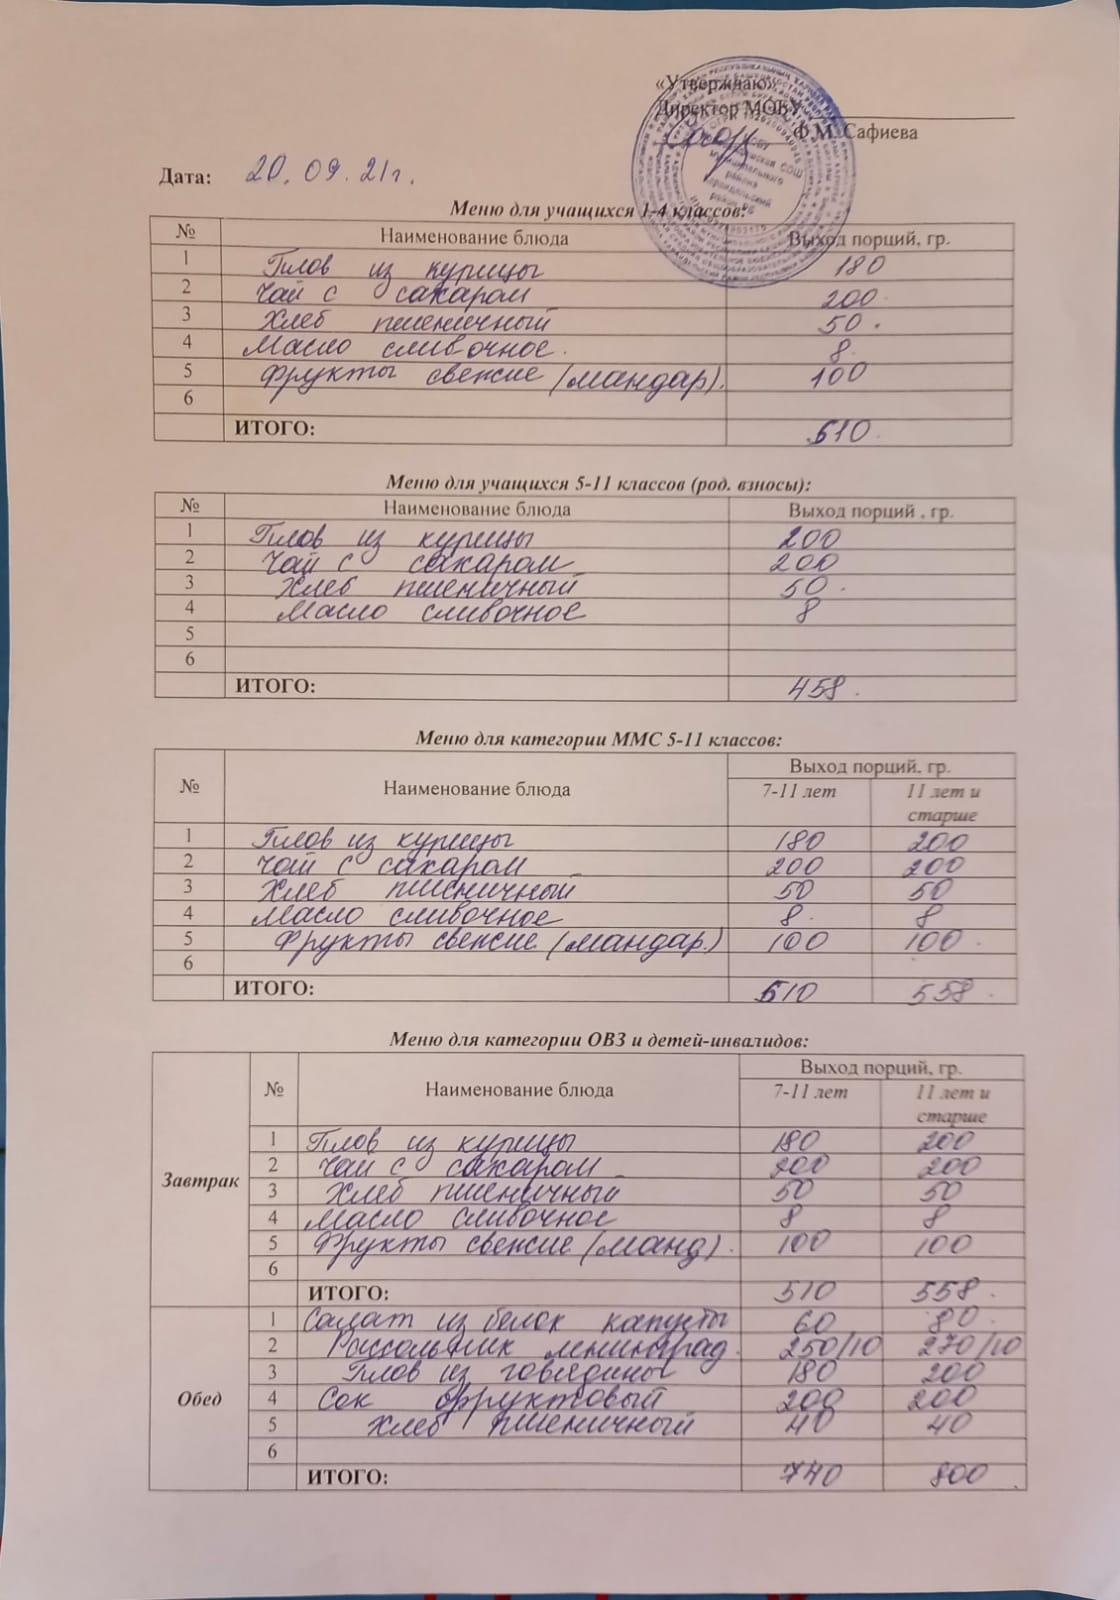 «Утверждаю»
Директор МОБУ
Ф.М. Сафиева
Дата: 20.09.21г.
Меню для учащихся 1-4 классов:
№ Наименование блюда Выход порций, гр.
1 Плов из курицы 180
2 Чай с сахаром 200
3 Хлеб пшеничный 50
4 Масло сливочное 8
5 Фрукты свежие (мандар). 100
6
ИТОГО: 510
Меню для учащихся 5-11 классов (род. взносы):
№ Наименование блюда Выход порций , гр.
1 Плов из курицы 200
2 Чай с сахаром 200
3 Хлеб пшеничный 50
4 Масло сливочное 8
5
6
ИТОГО: 458
Меню для категории ММС 5-11 классов:
№ Наименование блюда Выход порций, гр.
7-11 лет 11 лет и старше
1 Плов из курицы 180 200
2 Чай с сахаром 200 200
3 Хлеб пшеничный 50 50
4 Масло сливочное 8 8
5 Фрукты свежие (мандар.) 100 100
6
ИТОГО: 510 558
Меню для категории ОВЗ и детей-инвалидов:
№ Наименование блюда Выход порций, гр.
7-11 лет 11 лет и старше
Завтрак
1 Плов из курицы 180 200
2 Чай с сахаром 200 200
3 Хлеб пшеничный 50 50
4 Масло сливочное 8 8
5 Фрукты свежие (манд). 100 100
6
ИТОГО: 510 558
Обед
1 Салат из белок капусты 60 80
2 Рассольник ленинград. 250/10 270/10
3 Плов из говядины 180 200
4 Сок фруктовый 200 200
5 Хлеб пшеничный 40 40
6
ИТОГО: 740 800